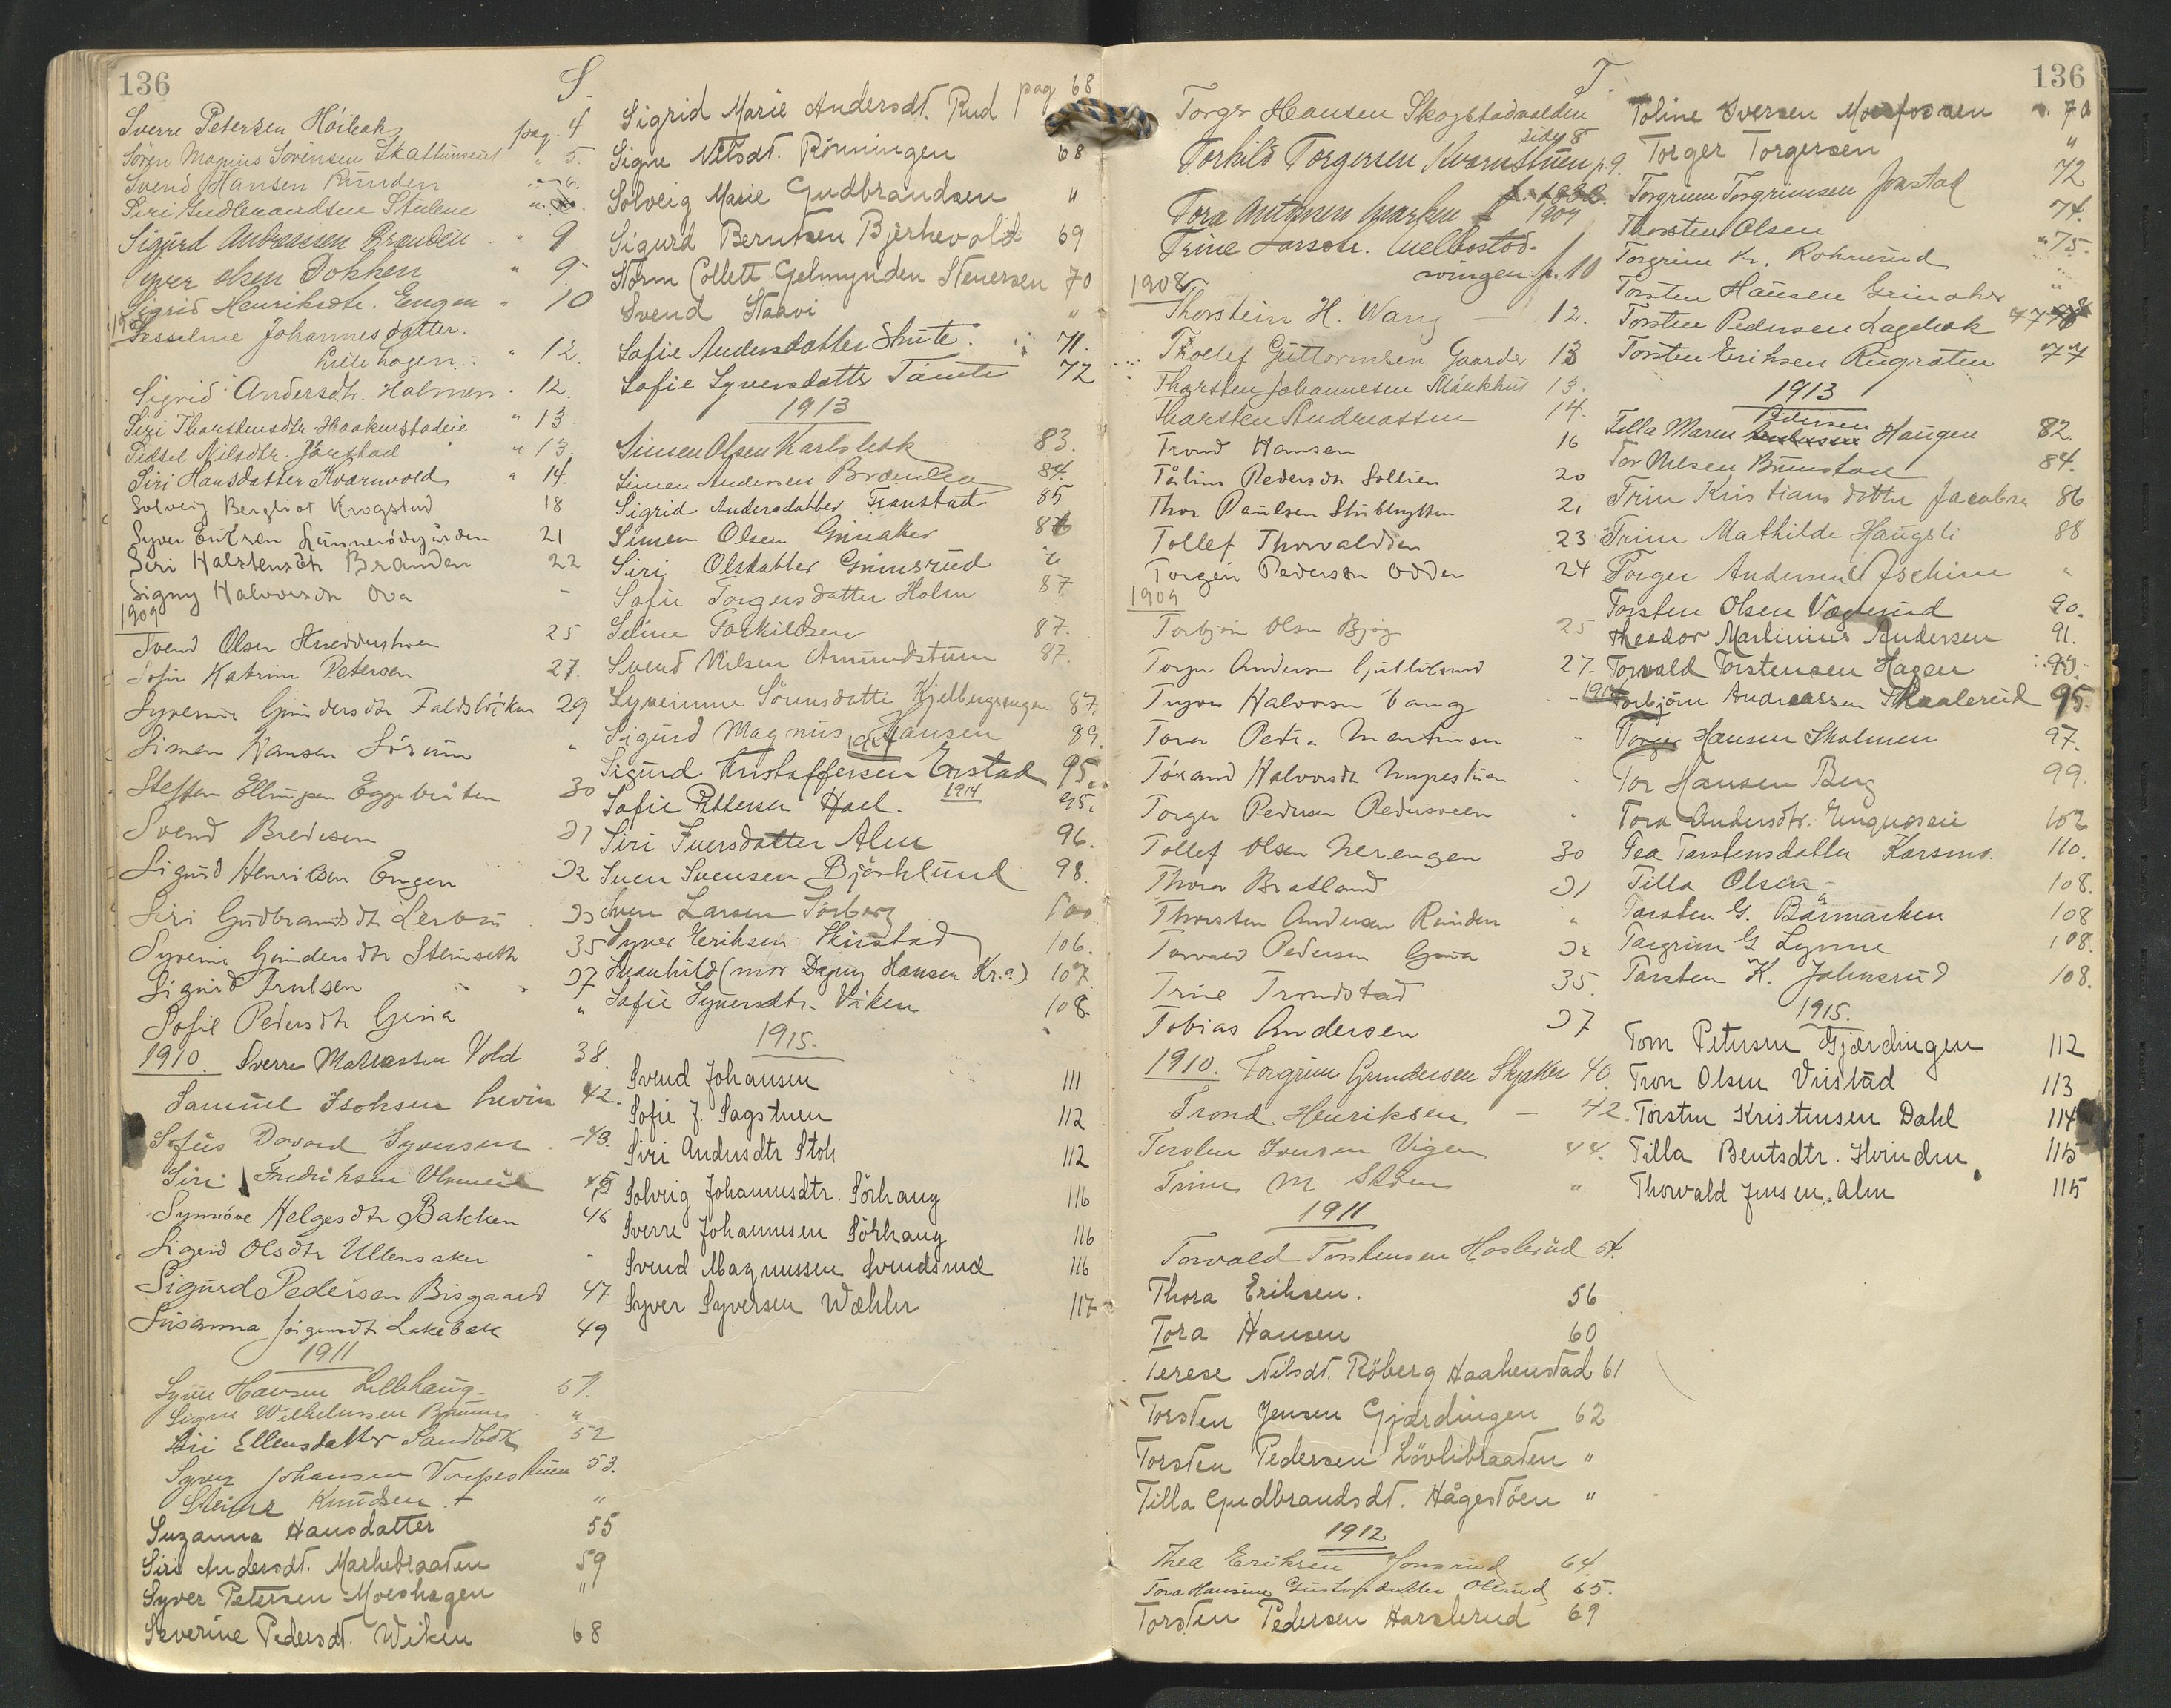 136
S.
Sverre Petersen Höibak pag. 4
Sören Magnus Sörensen " 5.
Svend Hansen Runden " 6.
Siri Gudbrandsen
Sigurd Andreassen Branden " 9
Syver Olsen Dokken " 9.
Sigrid Henriksdtr. Engen " 10
Sesseline Johannesdatter.
Lillehagen " 12.
Sigrid Andersdtr. Holmen " 12.
Siri Thorstensdtr Haakenstadeie " 13
Sidsel Nilsdtr. Jorstad " 13.
Siri Hansdatter Kvernvold " 14.
Solveig Bergliot Krogstad 18
Syver Eriksen 21
Siri Halstensdtr Branden 22
Signy Halvorsdtr Ova -
1909
Svend Olsen 25
Sofie Katrine Petersen 27.
Syverine Gundersdtr 29
Simen Hansen Sörum "
Steffen Ellingsen Eggebråten 30
Svend Bredesen 31
Sigurd Henriksen Engen 32
Siri Gudbrandsdt 33
Syverine Gundersdtr Steinseth 35
Sigurd Arntsen 37
Sofie Pedersdtr Grina "
1910. Sverre Mathiassen Vold 38.
Samuel Isaksen 42.
Sofus Edvard Syversen - 43.
Siri Fredriksen 45
Synnöve Helgesdtr Bakken 46
Sigrid Olsdtr Ullensaker "
Sigurd Pedersen Bisgaard 47
Susanna Jörgensdtr Lakebak 49
1911
Syver Hansen Lillehaug 51.
Signe Wilhelmsen "
Siri Ellensdatter Sandbæk 52
Syver Johansen Vorpestuen 53.
Steinar Knudsen + "
Suzanna Hansdatter 55
Siri Andersdt. Markebraaten 59
Syver Petersen Moeshagen "
Severine Pedersdt. Wiken 68
Sigrid Marie Andersdt. Rud pag 68
Signe Nilsdt. Rönningen 68
Solveig Marie Gudbrandsen "
Sigurd Berntsen Bjerkevold 69
Storm Collett Gelmynden Stenersen 70
Svend Staavi "
Sofie Andersdatter Skute. 71.
Sofie Syversdatter Tömte 72
1913
Simen Olsen Karlsbak 83.
Simen Andersen Brænden 84.
Sigrid Andersdatter Franstad 85
Simen Olsen Grinaker 86
Siri Olsdatter Grimsrud "
Sofie Torgersdatter Holm 87.
Seline Torkildsen 87.
Svend Nilsen Amundstuen 87.
Syverinne Sörensdatter 87.
Sigurd Magnus Hansen 89.
Sigurd Kristoffersen Egstad 95.
Sofie Pettersen Hael. 1914 95.
Siri Iversdatter Alm 96.
Sven Svensen Björklund 98.
Sven Larsen Sörberg 100
Syver Eriksen Skiastad 106.
Svanhild (mor Dagny Hansen Kr.a) 107.
Sofie Syversdtr. Viken 108.
1915.
Svend Johansen 111
Sofie J. Sagstuen 112
Siri Andersdtr Stok 112
Solveig Johannesdtr. Sörhaug 116
Sverre Johannesen Sörhaug 116
Svend Magnussen Svendsrud 116
Syver Syversen Wæhler 117
T.
136
Torger Hansen Skogstadvolden
side 8
Torkild Torgersen Kvernstuen p. 9.
Tora Antonsen
1909
Trine Larsdtr. Melbostad-
svingen p. 10
1908
Thorstein H. Wang - 12.
Thollef Guttormsen Gaarder 13
Thorsten Johannesen 13.
Thorsten Andreassen 14.
Trond Hansen 16
Pedersdtr Sollien 20
Thor Paulsen Stubbhytten 21
Tollef Thorvaldsen 23
Torgen Pedersen Odden 24
1909
Torbjörn Olsen 25
Torger Andersen 27.
Trygve Halvorsen Vang -
Tora Petra Martinsen "
Törand Halvorsdtr
Torger Pedersen "
Tollef Olsen Nerengen 30
Thora Bratland 31
Thorsten Andersen Runden "
Torvald Pedersen Grina 32
Trine Trondstad 35.
Tobias Andersen 37
1910. Torgrim Gundersen Skjaker 40.
Trond Henriksen - 42.
Torsten Iversen Vigen 44.
Trine M "
1911
Torvald Torstensen Haslerud 51.
Thora Eriksen. 56
Tora Hansen 60
Terese Nilsdt. Röberg Haakenstad 61
Torsten Jensen Gjærdingen 62
Torsten Pedersen Lövlibraaten "
Tilla Gudbrandsdt. Hågestöen "
1912
Thea Eriksen Jonsrud 64.
Tora Hansine Gustavsdatter Olsrud 65.
Torsten Pedersen Harslerud 69
Toline Iversen Moesfossen s. 70
Torger Torgersen "
Torgrim Torgrimsen Jorstad 72
Thorsten Olsen 74.
Torgrim Kr. Roknerud " 75.
Torsten Hansen Grinaker "
Torsten Pedersen Lagebæk 77
Torsten Eriksen Rugraten 77
1913
Pedersen
Tilla Maren Haugen 82.
Tor Nilsen Brunstad 84.
Trine Kristiansdatter Jacobsen 86
Trine Mathilde Haugsli 88
Torger Andersen "
Torsten Olsen Vagerud 90.
Theodor Martinius Andersen 91.
Torvald Torstensen Hagen 93.
1914 Torbjörn Andreassen Skaalerud 95.
Torger Hansen Skolmen 97.
Tor Hansen Berg 99.
Tora Andersdtr. 102
Tea Torstensdatter Karsmo. 110.
Tilla Olsen 108.
Torsten G. Bårmarken 108
Torgrim G Lynne 108.
Torsten K. Johnsrud 108.
1915.
Tom Petersen Gjærdingen 112
Tron Olsen Vristad 113
Torsten Kristensen Dahl 114
Tilla Bentsdtr. Hvinden 115
Thorvald Jensen Alm 115